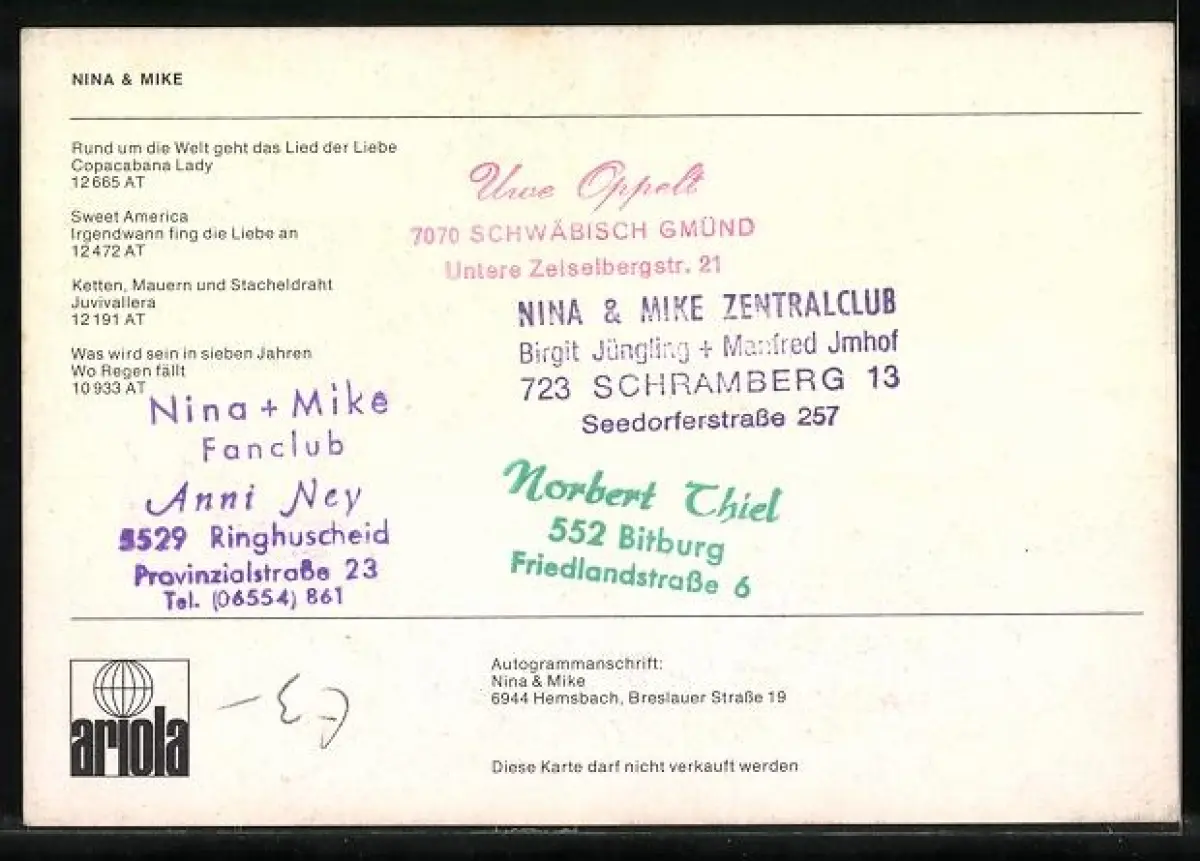 NINA & MIKE
Rund um die Welt geht das Lied der Liebe
Copacabana Lady
12 665 AT
Sweet America
Irgendwann fing die Liebe an
12 472 AT
Ketten, Mauern und Stacheldraht
Juvivallera
12 191 AT
Was wird sein in sieben Jahren
Wo Regen fällt
10 933 AT
Uwe Oppelt
7070 SCHWÄBISCH GMÜND
Untere Zeiselbergstr. 21
NINA & MIKE ZENTRALCLUB
Birgit Jüngling + Manfred Jmhof
723 SCHRAMBERG 13
Seedorferstraße 257
Nina + Mike
Fanclub
Anni Ney
5529 Ringhuscheid
Provinzialstraße 23
Tel. (06554) 861
Norbert Thiel
552 Bitburg
Friedlandstraße 6
ariola
Autogrammanschrift:
Nina & Mike
6944 Hemsbach, Breslauer Straße 19
Diese Karte darf nicht verkauft werden